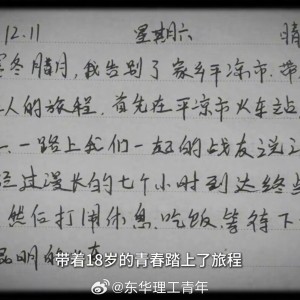 12.11 星期六 晴
冬腊月,我告别了家乡平凉市.带
人的旅程.首先在平凉市火车站
一路上我们一起的战友说
过漫长的七个小时到达终
然后打开休息.吃饭,等待下
昆明的
带着18岁的青春踏上了旅程
@东华理工青年